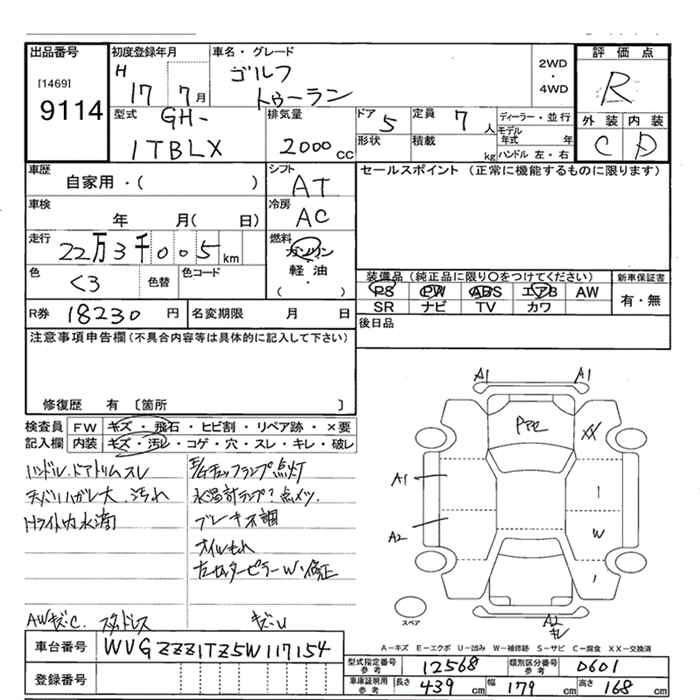 出品番号 初度登録年月 車名・グレード 2WD ・ 4WD 評価点
[1469] H 17 7月 ゴルフ トゥーラン R
9114
型式 GH- 1TBLX
排気量 2000cc
ドア 5 定員 7人 ディーラー・並行
形状 積載 kg モデル年式 年
ハンドル 左・右
外装 内装
C D
車歴 自家用・( )
シフト AT
セールスポイント (正常に機能するものに限ります)
車検 年 月( 日)
冷房 AC
走行 22万3千005km
燃料 ガソリン 軽油 ・ ( )
色 くろ 色替 色コード
装備品 (純正品に限り○をつけてください) 新車保証書
PS PW ABS エアB AW 有・無
SR ナビ TV カワ
R券 18230円 名変期限 月 日
後日品
注意事項申告欄(不具合内容等は具体的に記入して下さい)
修復歴 有 〔箇所 〕
検査員 FW キズ・飛石・ヒビ割・リペア跡・×要
記入欄 内装 キズ・汚レ・コゲ・穴・スレ・キレ・破レ
ハンドル.ドアトリムスレ
天バリハガレ大 汚れ
Hライト内水滴
チェックランプ点灯
水温計ランプ?点メツ
ブレーキ不調
オイルもれ
左センターピラーW・修正
AWキズ.C. スタッドレス キズ・U
A1 A1
PとれE XX
A1 |
A2 W
|
A2
スペア
A−キズ E−エクボ U−凹み W−補修跡 S−サビ C−腐食 XX−交換済
車台番号 WVGZZZ1TZ5W117154
登録番号
型式指定番号 参考 12568 類別区分番号 参考 0601
車庫証明用 参考 長さ 439cm 幅 179cm 高さ 168cm